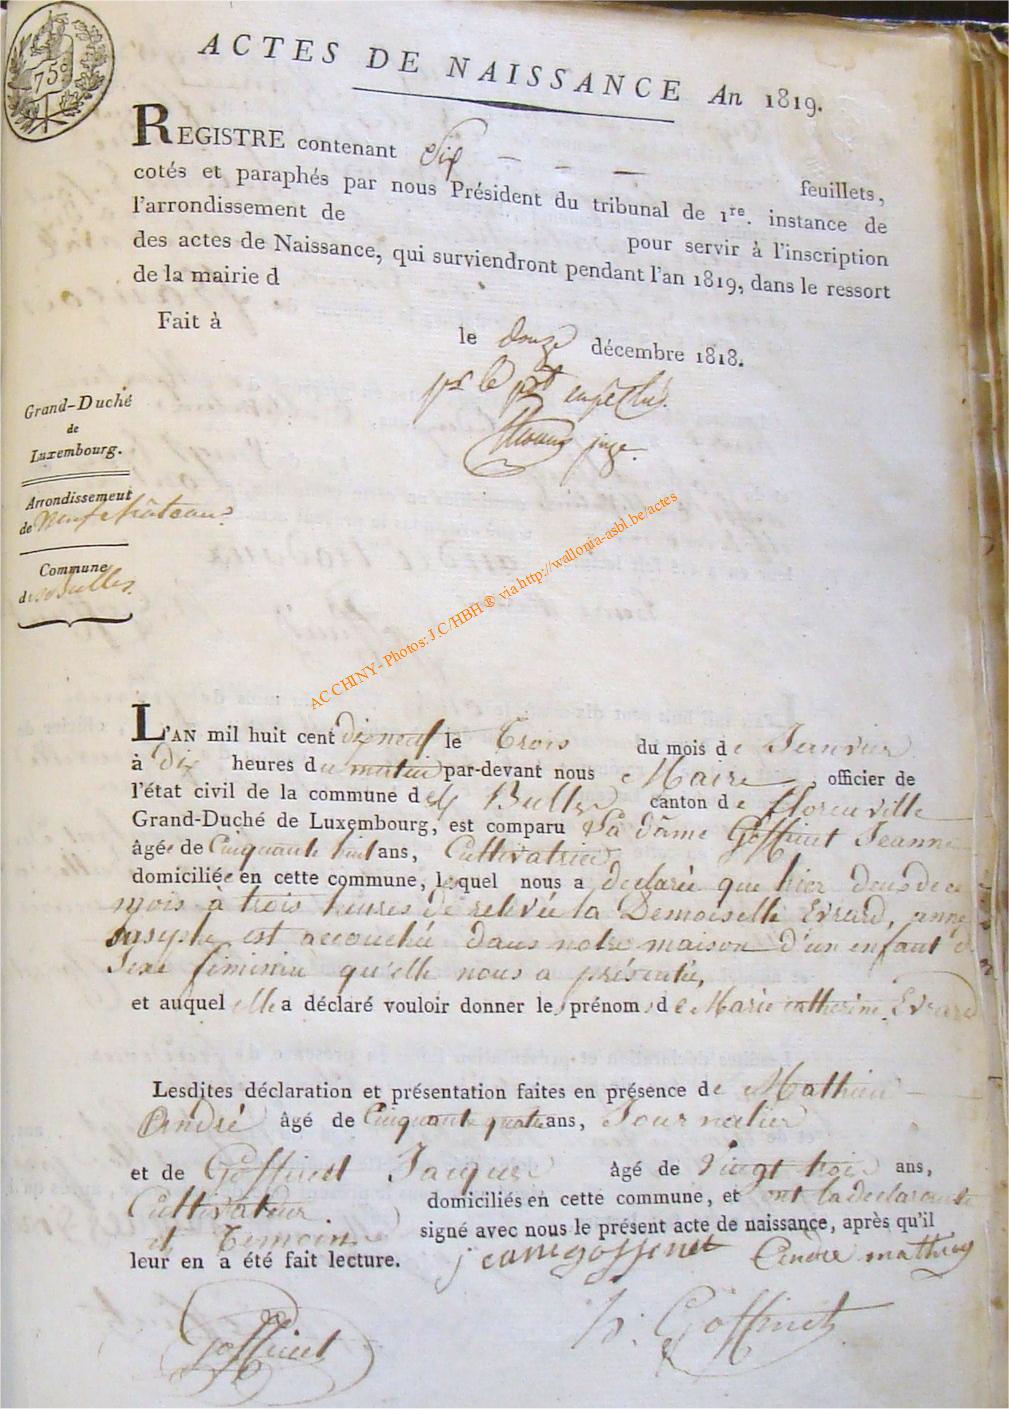 75c
ACTES DE NAISSANCE An 1819.
REGISTRE contenant Six feuillets,
cotés et paraphés par nous Président du tribunal de 1re. instance de
l'arrondissement de pour servir à l'inscription
des actes de Naissance, qui surviendront pendant l'an 1819, dans le ressort
de la mairie d
Fait à le douze décembre 1818.
pr le pdt empêché.
juge.
Grand-Duché
de
Luxembourg.
Arrondissement
de Neufchâteau
Commune
des Bulles.
AC CHINY - Photos: J.C/HBH ® via http://wallonia-asbl.be/actes
L'AN mil huit cent dix neuf le Trois du mois de Janvier
à dix heures du matin par-devant nous Maire, officier de
l'état civil de la commune des Bulles canton de florenville
Grand-Duché de Luxembourg, est comparu La dâme Goffinet Jeanne
âgée de Cinquante huit ans, Cultivatrice
domiciliée en cette commune, lequel nous a declarée que hier deux de ce
mois à trois heures de relevée la Demoiselle Evrard, anne
Josephe est accouchée dans notre maison d'un enfant d
Sexe fiminin qu'elle nous a présentée,
et auquel elle a déclaré vouloir donner les prénoms de Marie catherine Evrard
Lesdites déclaration et présentation faites en présence de Mathieu
André âgé de Cinquante quatre ans, Journalier
et de Goffinet Jacques âgé de Vingt trois ans,
Cultivateur domiciliés en cette commune, et ont la declarante
et Temoins signé avec nous le présent acte de naissance, après qu'il
leur en a été fait lecture. jeanne goffinet André mathieu
Goffinet Goffinet